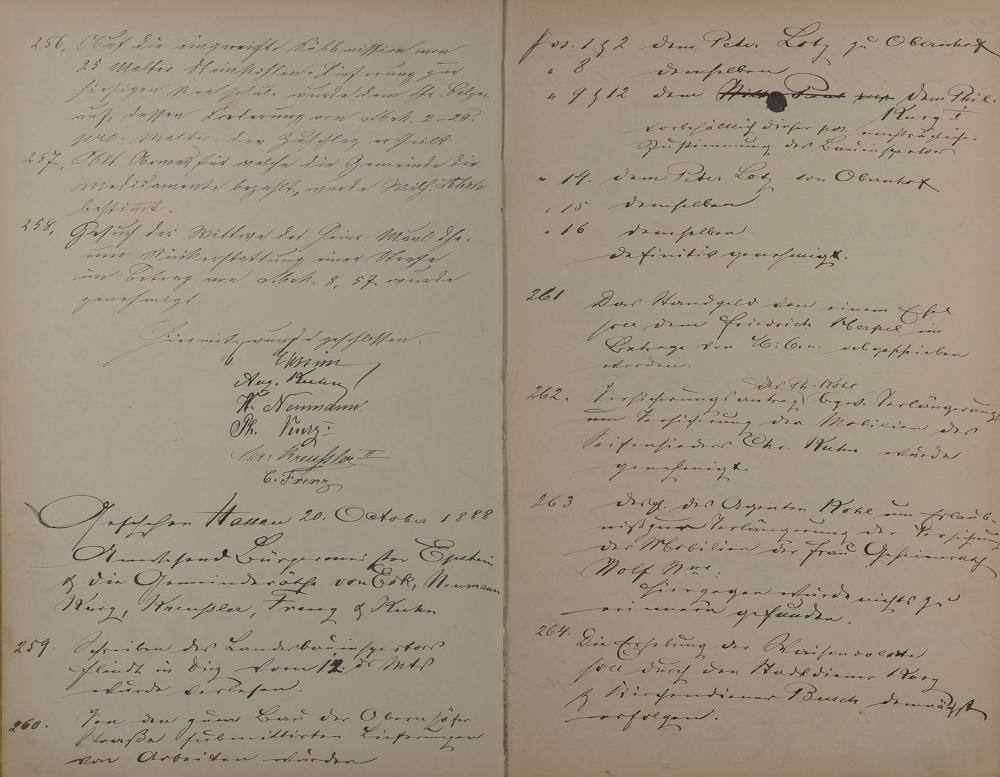 256. Auf die eingereichte Submission von
25 Malter Steinkohlen-Lieferung zur
hiesigen wurde dem
auf dessen Forderung von Mrk. 2-20
pro Malter der Zuschlag ertheilt
257. Als für welche die Gemeinde die
Medicamente bezahlt, wurde Wilh.
bestimt.
258. Gesuch der Wittwe des Heinr:
um Rückerstattung einer
im Betrag von Mrk. 8,57 wurde
genehmigt.
Hiermit wurde geschlossen.
Aug. Kuhn
W. Neumann
Ph. Kurz I
Chr: Kreußler II
C. Franz
Geschehen Nassau 20. October 1888
Anwesend Bürgermeister Epstein
& die Gemeinderäthe von Eck, Neumann
Kurz, Kreußler, Franz & Kuhn
259. Schreiben des Landesbauinspectors
in Diez vom 12. ds Mts
wurde verlesen.
260. Von den zum Bau der Obernhöfer
Straße submittirten Lieferungen
von Arbeiten wurden
Pos. 1 & 2 dem Peter Lotz zu Obernhof
" 8 demselben
" 9 & 12 dem dem Phil.
Kurz I
vorbehältlich dieser pos. nachträglicher
Zustimmung des Bauinspectors
" 14. dem Peter Lotz von Obernhof
" 15 demselben
" 16 demselben
definitiv genehmigt.
261 Das Standgeld von einem Esel
soll dem Friedrich im
Betrage von abgeschrieben
werden.
des Ph. Kohl
262. Versicherungsantrag bezw. Verlängerung
um Versicherung der Mobilien des
Seifensieders Chr. Kuhn wurde
genehmigt.
263 desgl. des Agenten Kohl um Erlaub-
niß zur Verlängerung der Versicherung
der Mobilien der Frau Geheimrath
Wolf Wwe:
Hiergegen wurde nichts zu
erinnern gefunden.
264. Die Erhebung der
soll durch den Stadtdiener Kurz
& Kirchendiener Busch demnächst
erfolgen.